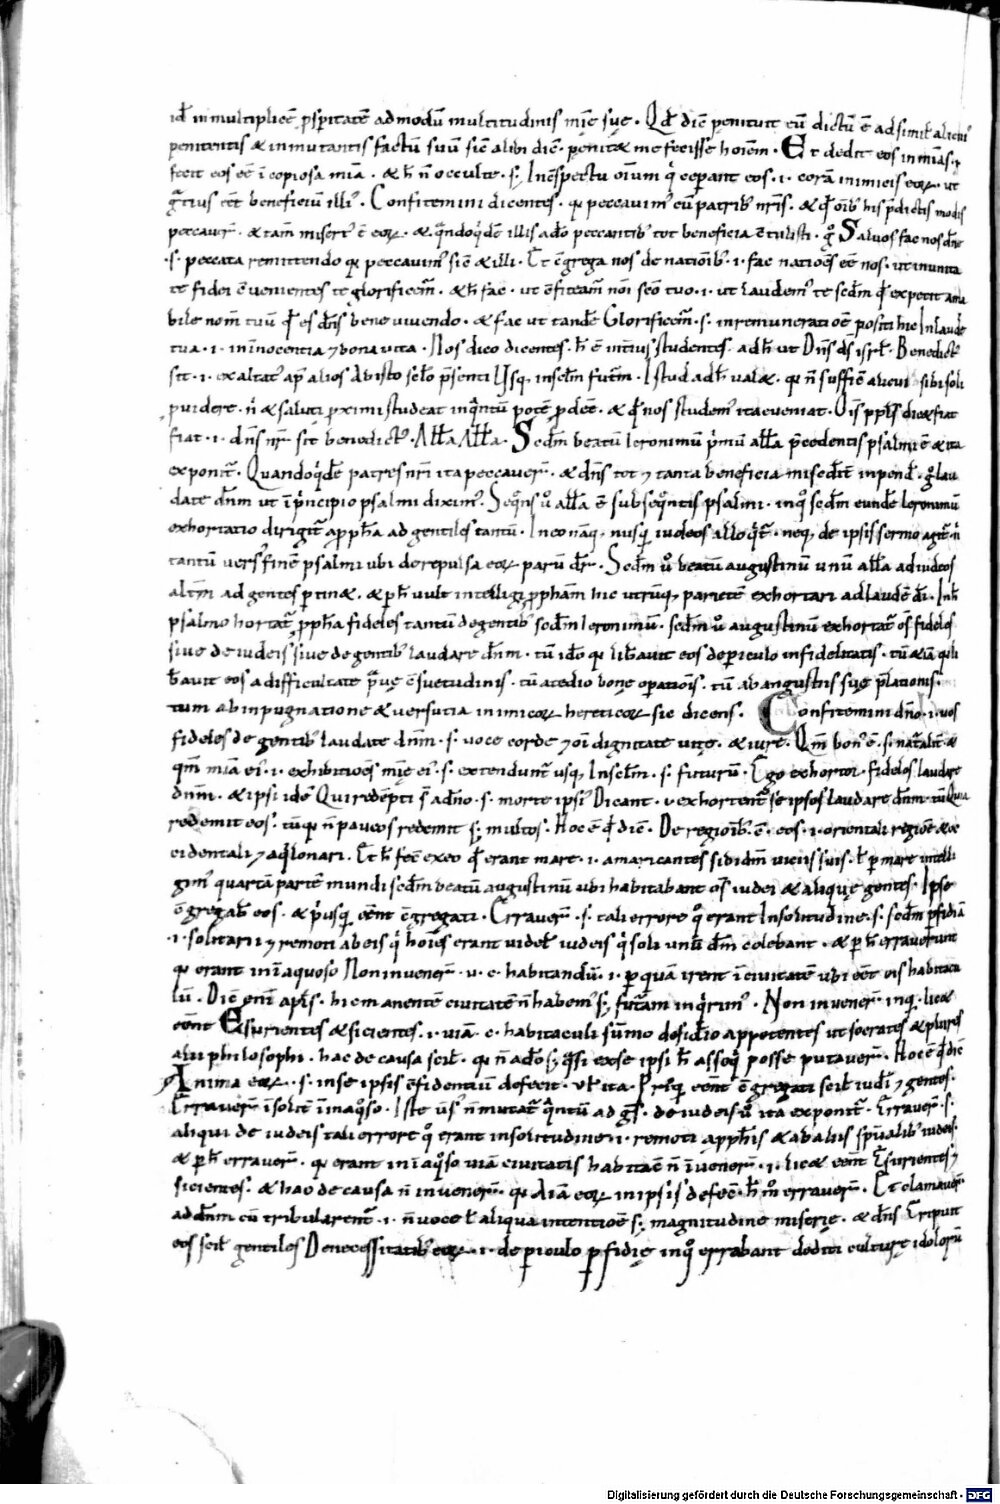 id̄ in multiplicē ꝓspitatē ad modū multitudinis mīe sue. Qd̄ dīc penituit eū dictū ē ad simil alicui'
penitentis & inmutantis factū suū sīc alibi dīc. penit& me fecisse hoīem. Et dedit eos in mīas.
fecit eos eē ī copiosa mīa. & h̄ n̄ occulte. s; In c̄spectu oīum qͥ ceperant eos. i. corā inimicis eoꝝ. ut
gͣtius eēt beneficiū illi'. Confitemini dicentes. qꝛ peccauim' cū patrib' nrīs. & qd̄ oīb' his p̄dictis modis
peccauer̄. & tam̄ misert' ē eoꝝ. & qͣndoqͥdē illis adeo peccantib' tot beneficia c̄tulisti. gͦ Saluos fac nos dn̄e
.s. peccata remittendo qꝛ peccauim' sīc & illi. Et c̄grega nos de natioīb'. i. fac natioēs eē nos. ut in unita
te fidei c̄uenientes te glorificem'. & h̄ fac. ut c̄fiteam̄ noī scō tuo. i. ut laudem' te sc̄dm qd̄ expetit ama
bile nom̄ tuū qd̄ ē dn̄s bene uiuendo. & fac ut tandē Glorificem̄. s. in remuneratiōe positi hic In laude
tua. i. in innocentia ⁊ bona uita. Nos dico dicentes. h̄ ē intēius studentes. ad h̄ ut Dn̄s ds̄ isrl̄. Benedict'
sit. i. exaltat' ap̄ alios Abisto sclo p̄senti Usq; in sclm̄ futm̄. Istud ad h̄ ual&. qꝛ n̄ suffic̄ alicui sibi soli
puidere. n̄ & saluti pximi studeat inqͣntū potē pdeē. & qd̄ nos studem' ita eueniat. Oīs ppl̄s dic& fiat
fiat. i. dn̄s nr̄ sit benedict'. All̄a All̄a. Sc̄dm beatū Ieronimū pͥmū all̄a p̄cedentis psalmi ē & ita
exponit̄. Quandoqͥdē patres nrī ita peccauer̄. & dn̄s tot ⁊ tanta beneficia misēdit̄ inpend̄. gͦ lau
date dn̄m ut ī pͥncipio psalmi dixim'. Seqn̄s ū all̄a ē subseqn̄tis psalmi. inqͦ sc̄dm eundē Ieronimū
exhortatio dirigit̄ a pph̄a ad gentiles tantū. In eo nāq; nusq̄ iudeos alloqͥt̄. neq; de ipsis sermo agit̄ nͥ
tantū uers' finē psalmi ubi de repulsa eoꝝ parū dr̄. Sc̄dm ū beatū augustinū unū all̄a ad iudeos
altm̄ ad gentes ptin&. & p h̄ uult intelligi pph̄am hic utrūq; parietē exhortari ad laudē dī. In h̄
psalmo hortat̄ pph̄a fideles tantū de gentib' sc̄dm Ieronimū. sc̄dm ū augustinū exhortat̄ oēs fideles
siue de iudeis siue de gentib' laudare dn̄m. tū ideo qꝛ lib̄auit eos de piculo infidelitatis. tū &iā qꝛ li
b̄auit eos a difficultate praue c̄suetudinis. tū a tedio bone opatioīs. tū ab angustiis sue p̄lationis.
tum ab inpugnatione & uersutia inimicoꝝ hereticoꝝ sic dicens. Confitemini dn̄o. i. uos
fideles de gentib' laudate dn̄m. s. uoce corde ⁊ oī dignitate uite. & iure. Qm̄ bon' ē. s. natͣalit̄ &
qm̄ mīa ei'. i. exhibitioēs mīe ei'. s. extendunt̄ usq; In sclm̄. s. futurū. Ego exhortor. fideles laudare
dn̄m. & ipsi idē Qui redēpti st̄ a dn̄o. s. morte ipsi' Dicant. v exhortent̄ se ipsos laudare dn̄m. tū Quia
redemit eos. tū qꝛ n̄ paucos redemit s; multos. Hoc ē qd̄ dīc. De regioīb'. c̄. eos. i. orientali regiōe & oc
cidentali ⁊ aqͥlonari. Et h̄ fec̄ exeo qd̄ erant mare. i. amaricantes sibidm̄ uiciis suis. ł p mare intelli
gim' quartā partē mundi sc̄dm beatū augustinū ubi habitabant oēs iudei & alique gentes. Ipse
c̄gregab' eos. & pͥusq̄ eēnt c̄gregati. Errauer̄. s. tali errore qͦ erant In solitudine. s. sc̄dm pfidiā
.i. solitarii ⁊ remoti ab eis qͥ hoīes erant uidel; iudeis qͥ soli unū dm̄ colebant. & p h̄ errauerunt
qꝛ erant in inaquoso Non inuener̄. u. c. habitandū. i. p quā irent ī ciuitatē ubi eēt eis habitacu
lū. Dīc eni apl̄s. hic manentē ciuitatē n̄ habem' s; futͣam inqͥrim'. Non inuener̄ inq. lic&
eēnt Esurientes & sicientes. i. uiā. c. habitaculi summo desidīo appetentes ut socrates & plures
alii philosophi. hac de causa scil. qꝛ n̄ a deo s; qͣsi ex se ipsi h̄ asseqͥ posse putauer̄. Hoc ē qd̄ dīc
Anima eoꝝ. s. in se ipsis c̄fidentiū defecit. ul ita. Priusq̄ eēnt c̄gregati scil iudi ⁊ gentes.
Erravuer̄ ī solit̄ ī inaqͦso. Iste us' n̄ mutat̄ qͣntū ad gͣs. de iudeis ū ita exponit̄. Errauer̄. s.
aliqui de iudeis tali errore qͦ erant in solitudine. i. remoti a pph̄is & ab aliis spūalib' iudeis.
& p h̄ errauer̄. qꝛ erant in inaqͦso uiā ciuitatis habitac̄ n̄ inuener̄. i. lic& eēnt Esurientes ⁊
sicientes. & hac de causa n̄ inuener̄. qꝛ Aīa eoꝝ in ipsis defec̄. h̄ mͦ errauer̄. Et clamauer̄
ad dn̄m cū tribularent̄. i. n̄ uoce ł aliqua intentiōe s; magnitudine miserie. & dn̄s Eripuit
eos scil gentiles De necessitatib' eoꝝ. i. de piculo pfidie inqͦ errabant dediti culture idoloꝝ